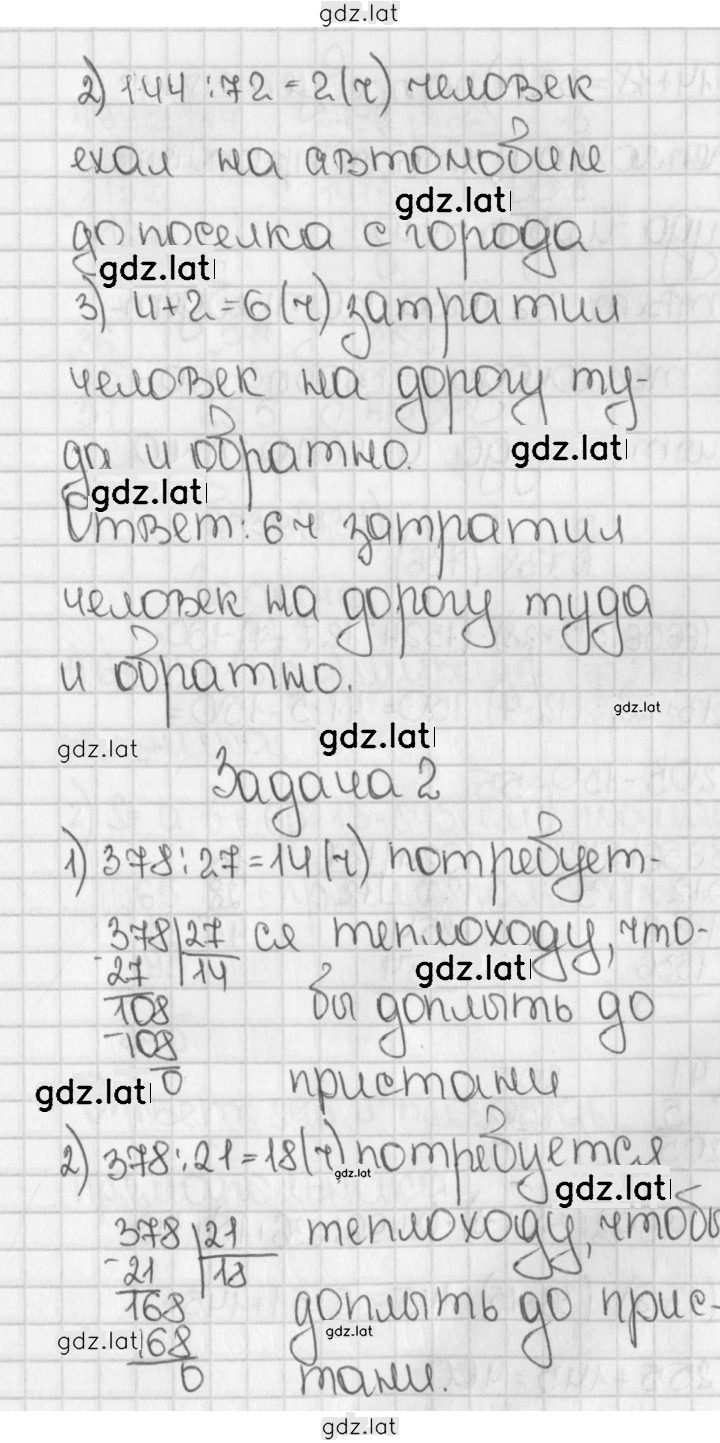 gdz.lat
2) 144 : 72 = 2 (ч) человек
ехал на автомобиле
gdz.lat
до поселка с города
gdz.lat
3) 4 + 2 = 6 (ч) затратил
человек на дорогу ту-
да и обратно.
gdz.lat
gdz.lat
Ответ: 6 ч затратил
человек на дорогу туда
и обратно.
gdz.lat
gdz.lat
gdz.lat
Задача 2
1) 378 : 27 = 14 (ч) потребует-
378 27 ся теплоходу, что-
27 14
gdz.lat
108 бы доплыть до
108
0 пристани
gdz.lat
2) 378 : 21 = 18 (ч) потребуется
gdz.lat
gdz.lat
378 21 теплоходу, чтобы
21 18
168 доплыть до прис-
gdz.lat
gdz.lat
168
0 тани.
gdz.lat